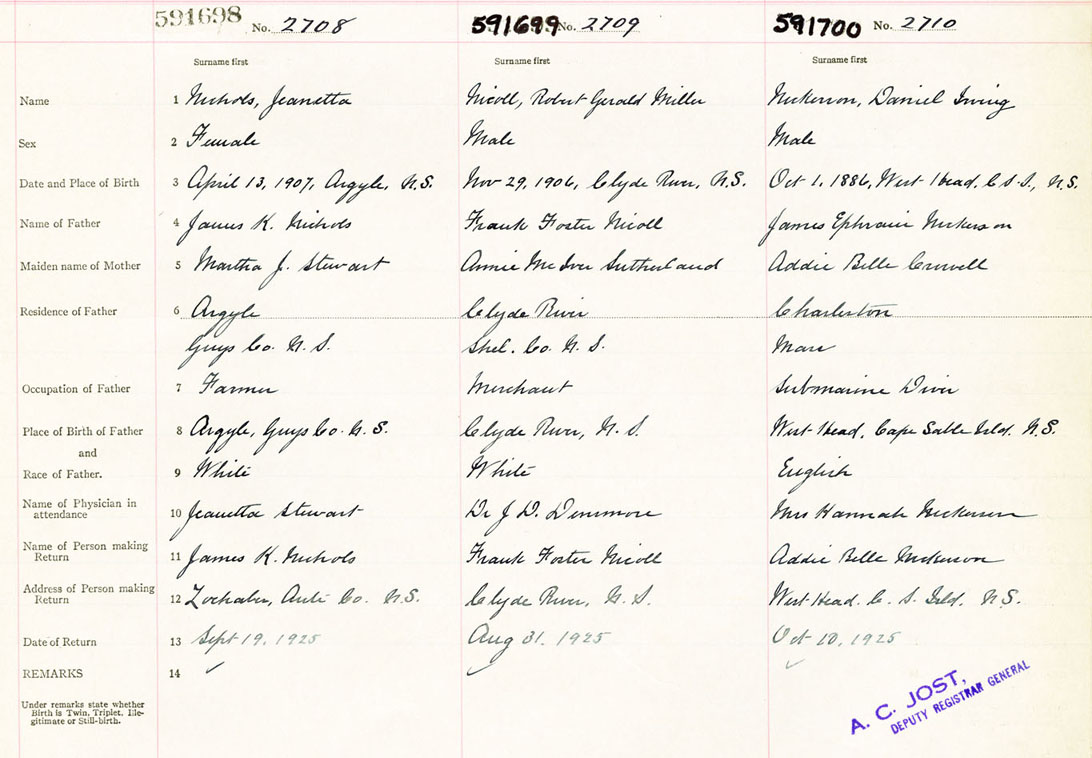 591698 No. 2708 591699 No. 2709 591700 No. 2710
Surname first Surname first Surname first
Name 1 Nichols, Jeanetta Nicoll, Robert Gerald Miller Nickerson, Daniel Irving
Sex 2 Female Male Male
Date and Place of Birth 3 April 13, 1907, Argyle, N.S. Nov 29, 1906, Clyde River, N.S. Oct 1, 1886, West Head, C.S.I., N.S.
Name of Father 4 James K. Nichols Frank Foster Nicoll James Ephraim Nickerson
Maiden name of Mother 5 Martha J. Stewart Annie McIver Sutherland Addie Belle Crowell
Residence of Father 6 Argyle Clyde River Charleston
Guys Co. N.S. Shel. Co. N.S. Mass
Occupation of Father 7 Farmer Merchant Submarine Diver
Place of Birth of Father 8 Argyle, Guys Co. N.S. Clyde River, N.S. West Head, Cape Sable Isld. N.S.
and
Race of Father. 9 White White English
Name of Physician in
attendance 10 Jeanetta Stewart Dr J. D. Densmore Mrs Hannah Nickerson
Name of Person making
Return 11 James K. Nichols Frank Foster Nicoll Addie Belle Nickerson
Address of Person making
Return 12 Lochaber, Anti Co. N.S. Clyde River, N.S. West Head. C. S. Isld. N.S.
Date of Return 13 Sept 19, 1925 Aug 31, 1925 Oct 10, 1925
REMARKS 14
Under remarks state whether
Birth is Twin, Triplet, Ille-
gitimate or Still-birth.
A. C. JOST,
DEPUTY REGISTRAR GENERAL